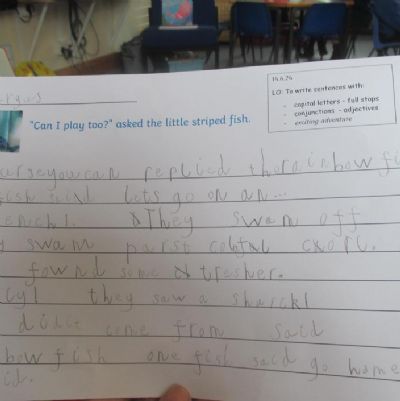 14.6.24
LO: To write sentences with:
- capital letters - full stops
- conjunctions - adjectives
- exciting adventure
"Can I play too?" asked the little striped fish.
arseyoucan replied therainbow fi
fish said lets go on an...
They swam off
swam parst colful
fownd some tresher.
they saw a sharck!
come from said
bow fish one fish said go home
id.